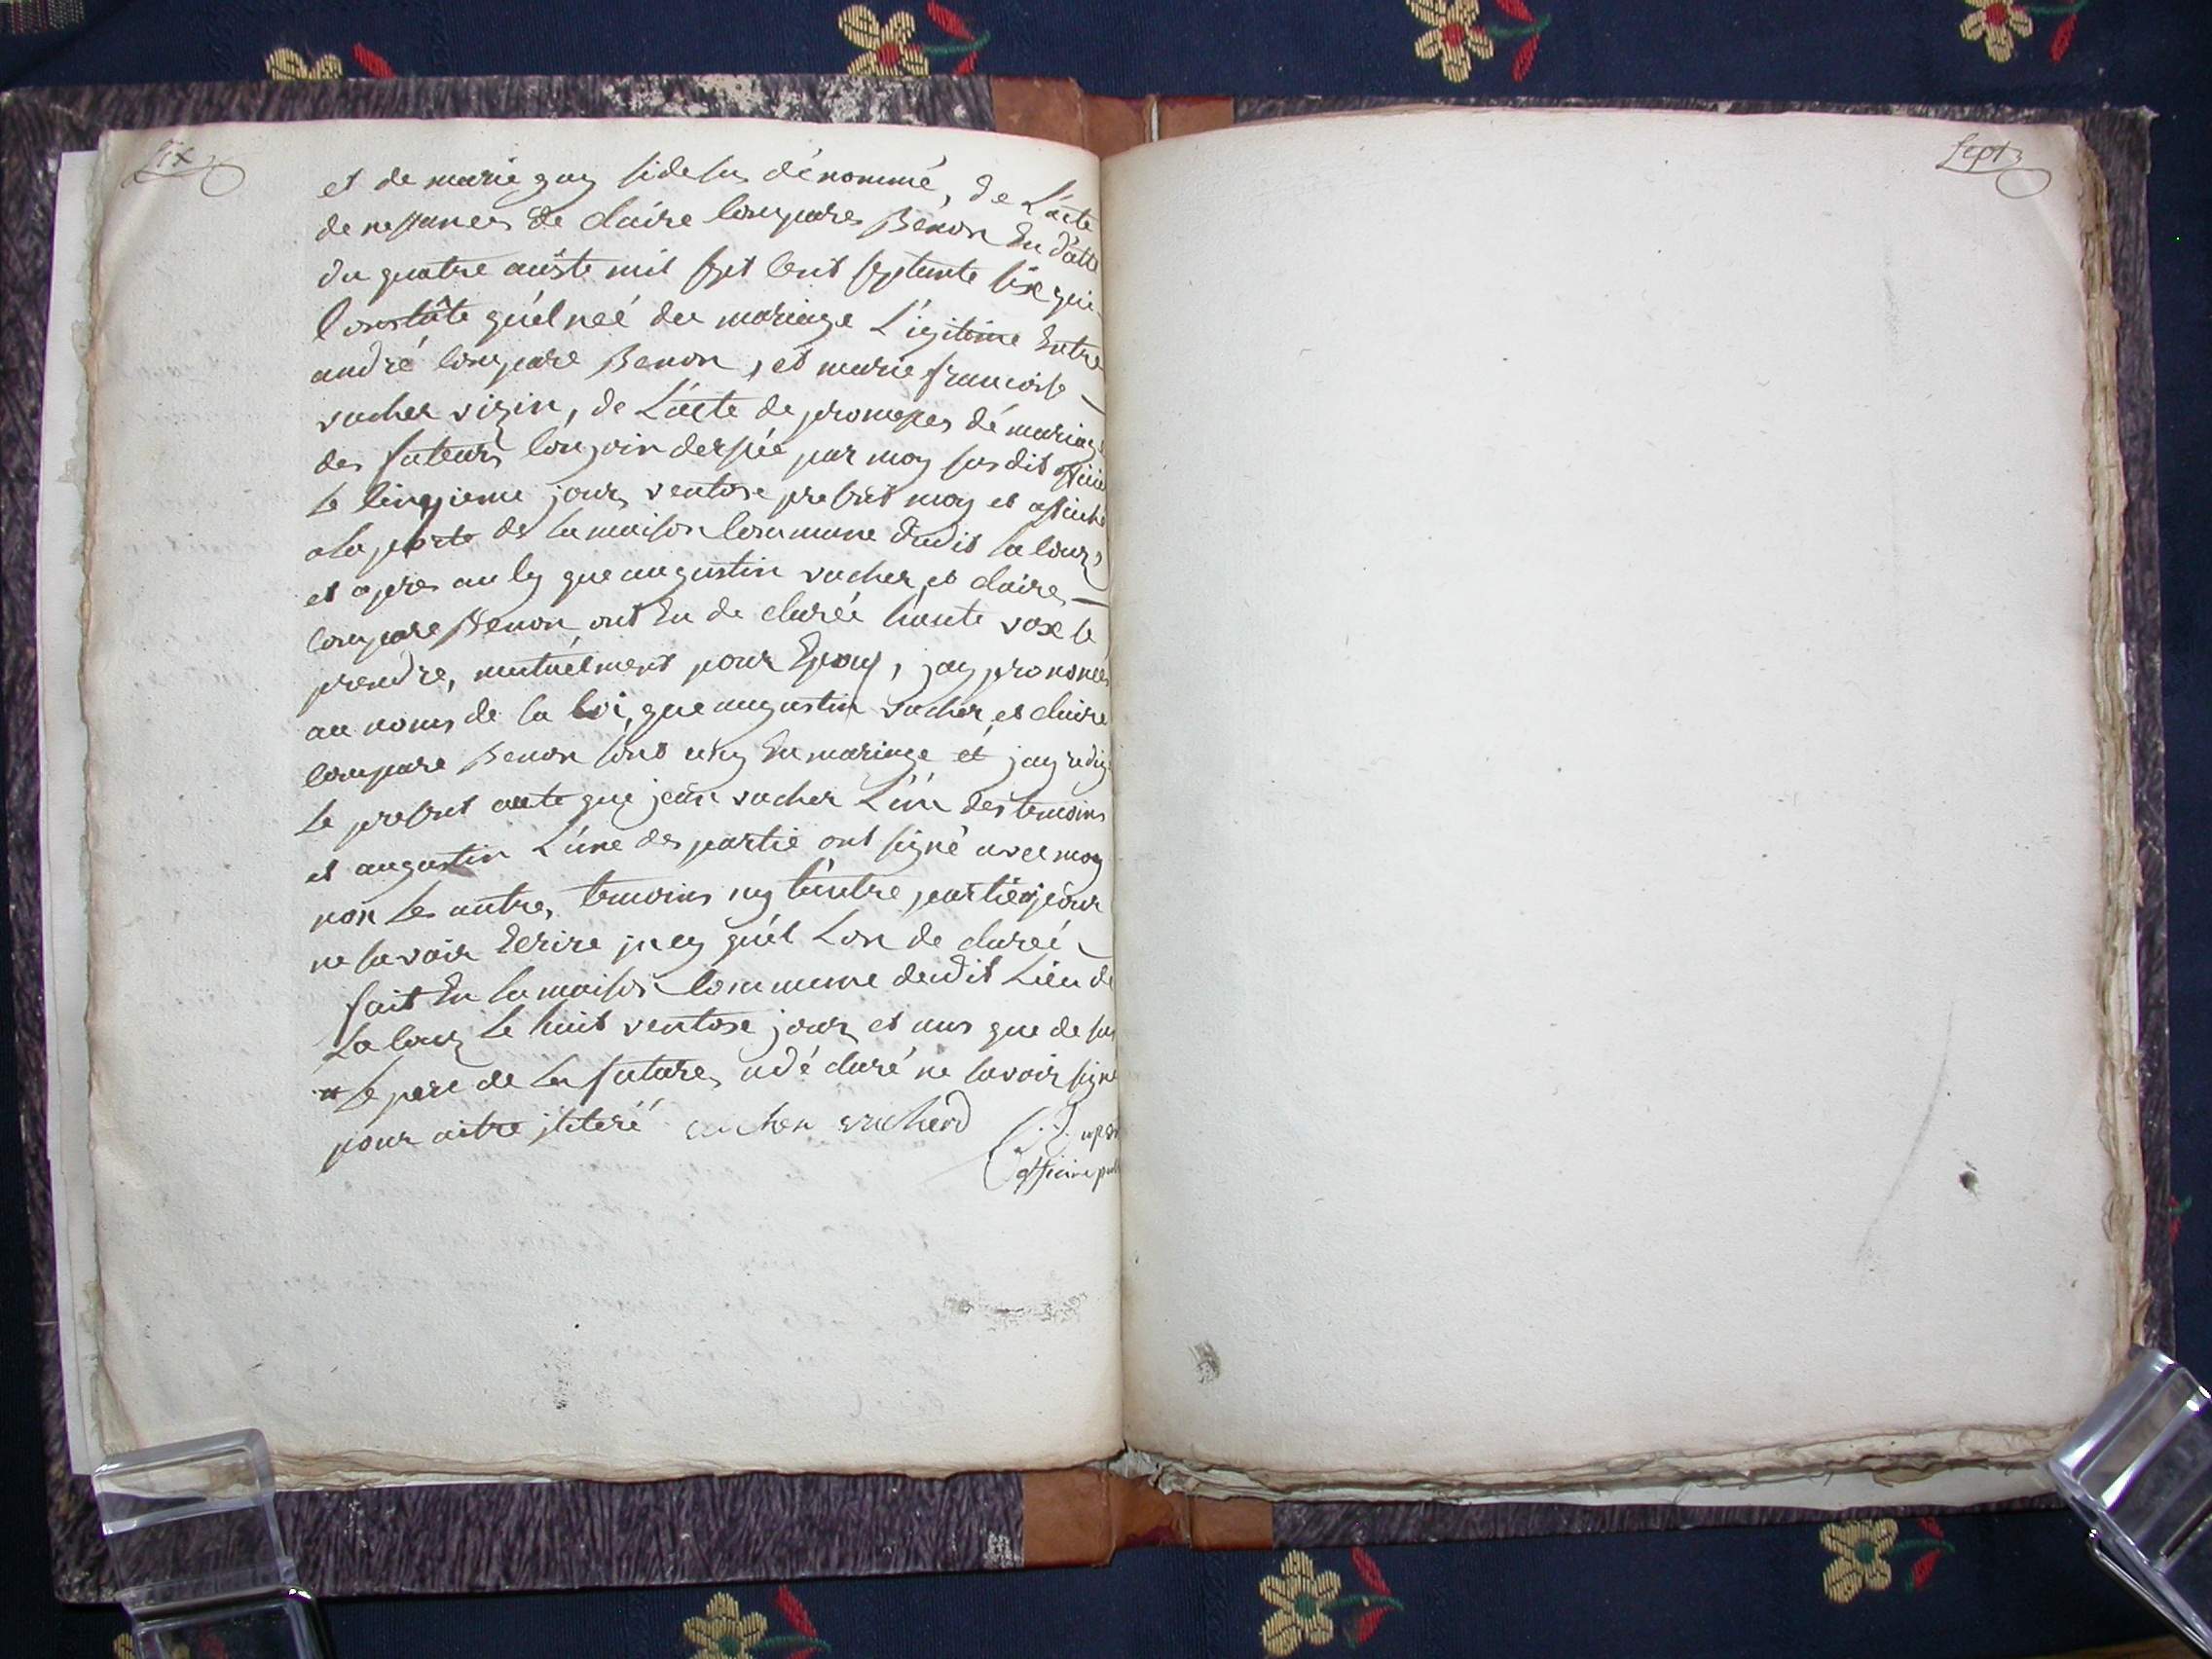 Six
et de marie guy sidesus dénommé, de L'acte
de nessances de claire compares Benon En datte
du quatre auste mil sept cent septente six qui
constâte quél neé du mariage Légitime Entre
andré compare Benon, et marie francoise
vacher vizin, de L'acte de promesses dé mariage
des futeurs conjoin dersée par moy susdit officié
le cinquieme jour ventose present moy et affiché
a la porte de la maison commune dudit la cour,
et apres au sy que augustin vacher, et claire
compare Benon ont En de claréé haute voxe se
prendre, mutuélment pour Epoux, jay prononcés
au noms de la loi, que augustin vacher, et claire
compare Benon sont uny En mariage et jay redigé
le present aute que jean vacher L'un des temoins
et augustin L'une des partie ont signé avec moy
non les autres temoins ny lautre partie pour
ne savoir Ecrire jn cy quél Lon de clareé
fait En la maison commune dudit Lieu de
La cour le huit ventose jour et ans que de sus
le pere de la future a dé claré ne savoir signé
pour aitre jteré vacher vacherd
officie publ
Sept